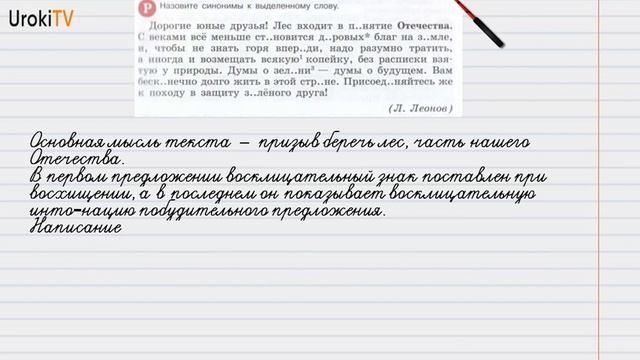 UrokiTV
Р Назовите синонимы к выделенному слову.
Дорогие юные друзья! Лес входит в п..нятие Отечества.
С веками всё меньше ст..новится д..ровых* благ на з..мле,
и, чтобы не знать горя впер..ди, надо разумно тратить,
а иногда и возмещать всякую¹ копейку, без расписки взя-
тую у природы. Думы о зел..ни³ — думы о будущем. Вам
беск..нечно долго жить в этой стр..не. Присоед..няйтесь же
к походу в защиту з..лёного друга!
(Л. Леонов)
Основная мысль текста – призыв беречь лес, часть нашего
Отечества.
В первом предложении восклицательный знак поставлен при
восхищении, а в последнем он показывает восклицательную
инто-нацию побудительного предложения.
Написание